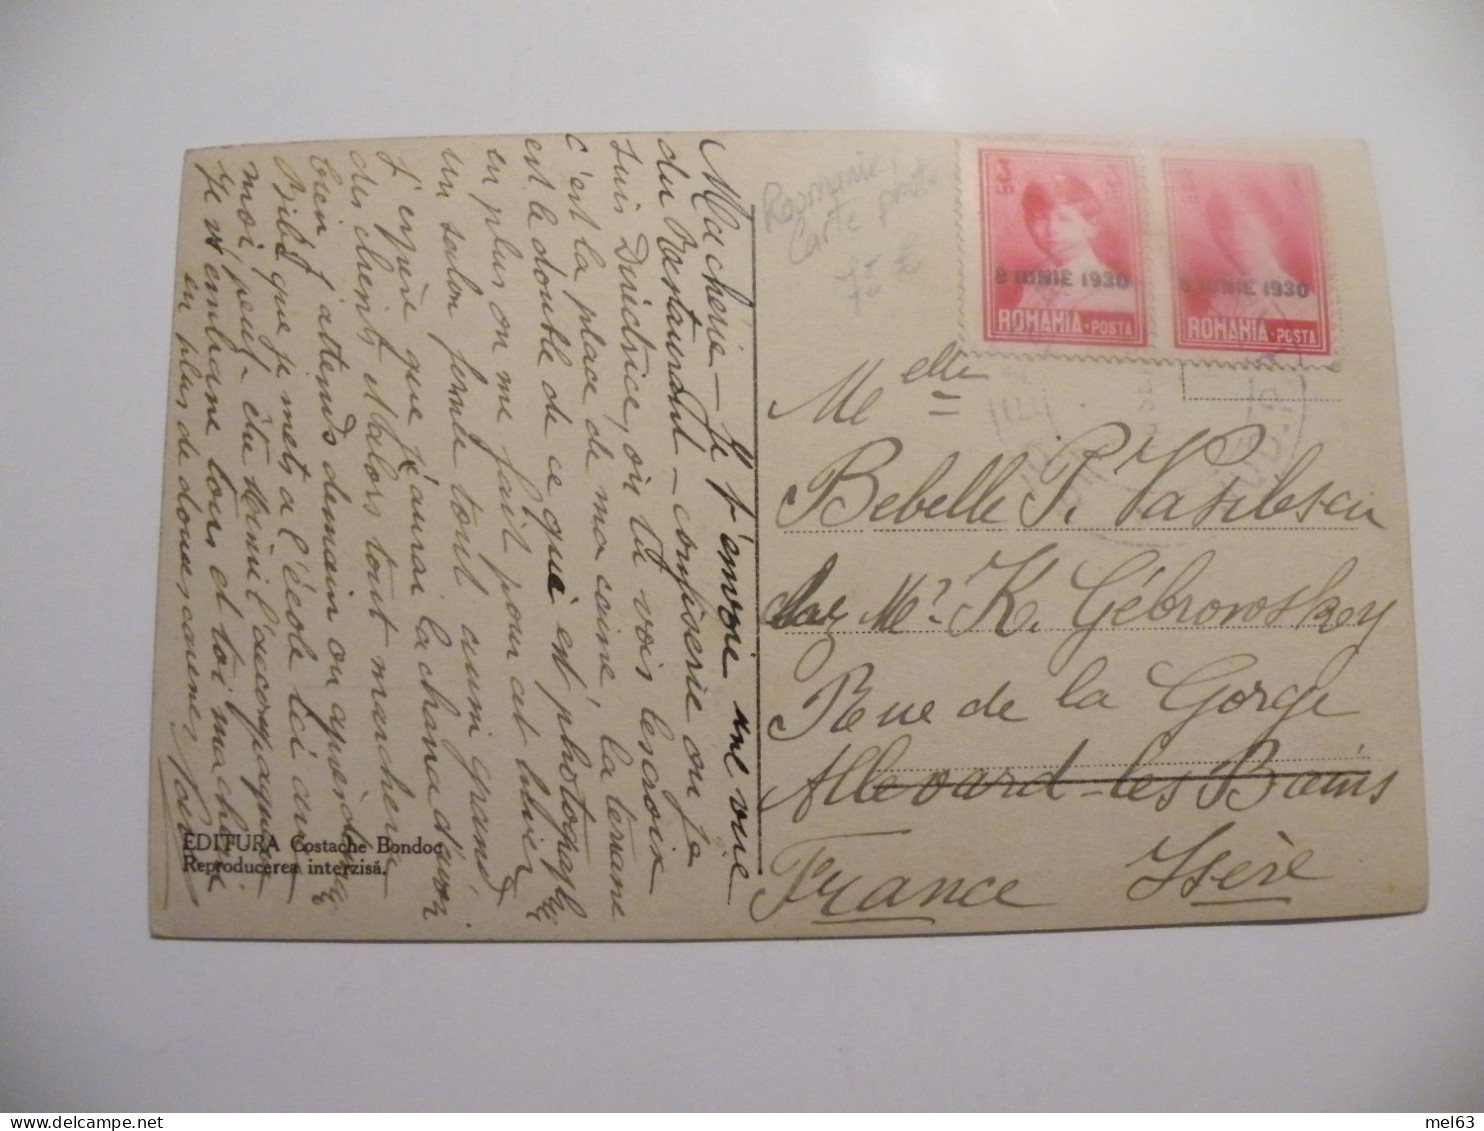 Ma chérie – Je t'envoie une vue
du Restaurant – confiserie où je
suis Directrice, où tu vois les croix
c'est la place de ma caisse, la terrasse
est le double de ce qui est photographié
en plus on me fait pour cet hiver
un salon fermé tout aussi grand
J'espère que j'aurai la chance d'avoir
des clients. Alors tout marchera
bien J'attends demain ou après demain
Bibi que je mets à l'école ici avec
moi, peut-être Mimi l'accompagnera
Je t'embrasse toi et ma chérie
en plus de
EDITURA Costache Bondoc
Reproducerea interzisă.
Roumanie
Carte photo
3
LEI
8 IUNIE 1930
ROMANIA·POSTA
8 IUNIE 1930
ROMANIA·POSTA
Melle
Bebelle P. Vasilescu
chez Mr K. Gébrowskey
Rue de la Gorge
Allevard-les Bains
France Isère
mel63